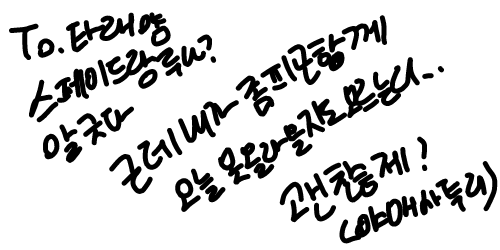 To. 타래양
스페이드랑 루니?
알긋다
근데 내가 좀 피곤항게
오늘 못올라올지도 모르닝니...
괜찮제!
(야매사투리)